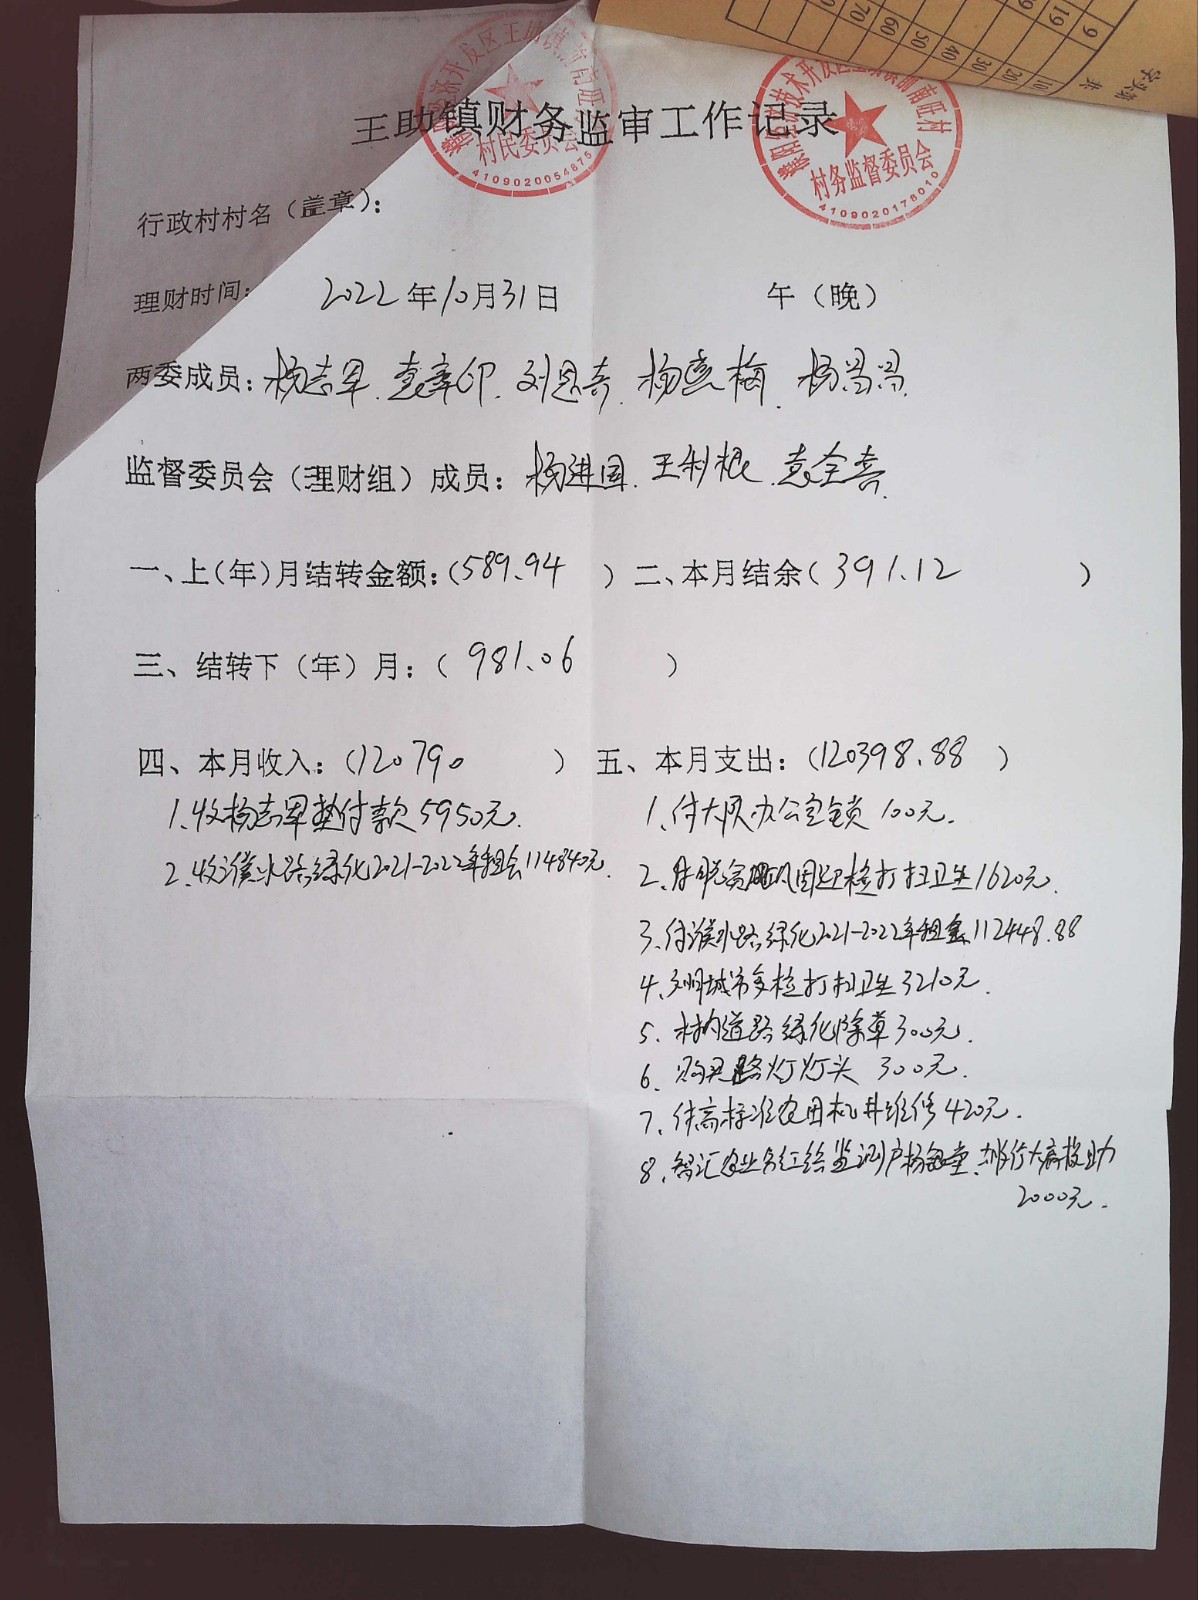 王助镇财务监审工作记录
村民委员会
4109020054875
村务监督委员会
4109020178010
行政村村名（盖章）：
理财时间： 2022年10月31日 午（晚）
两委成员：杨志军、袁章印、刘思奇、杨 梅、杨
监督委员会（理财组）成员：杨进国、王利根、袁全喜
一、上（年）月结转金额：（589.94 ）二、本月结余（391.12 ）
三、结转下（年）月：（ 981.06 ）
四、本月收入：（120790 ） 五、本月支出：（120398.88 ）
1、收杨志军垫付款5950元.
2、收濮水路绿化2021-2022年租金114840元.
1、付大队办公室锁100元.
2、 脱贫 固迎检打扫卫生1620元.
3、付濮水路绿化2021-2022年租金112448.88
4、文明城市迎检打扫卫生3210元.
5、村内道路绿化除草300元.
6、购买路灯灯头 300元.
7、付高标准农田机井维修420元.
8、智汇农业分红给监测户杨 堂、 大病救助
2000元.
10
20
30
40
50
60
70
9
19